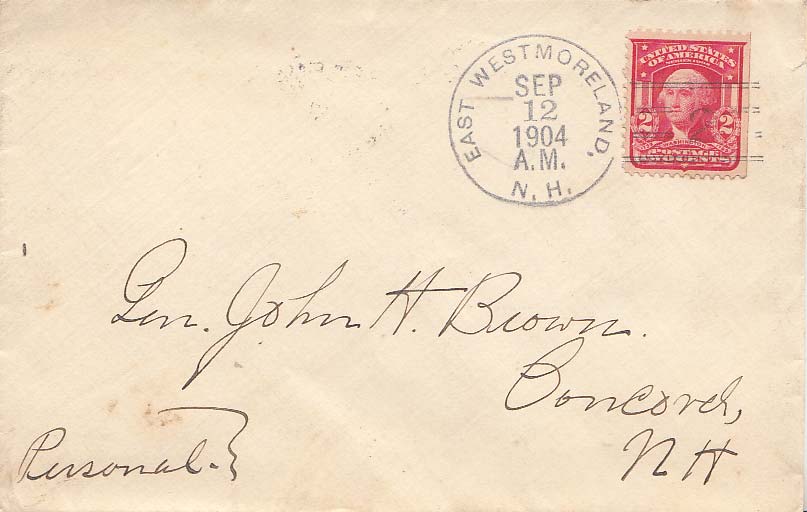 EAST WESTMORELAND,
SEP
12
1904
A.M.
N. H.
UNITED STATES
OF AMERICA
2 2
WASHINGTON
POSTAGE
Gen. John H. Brown.
Concord,
NH
Personal.